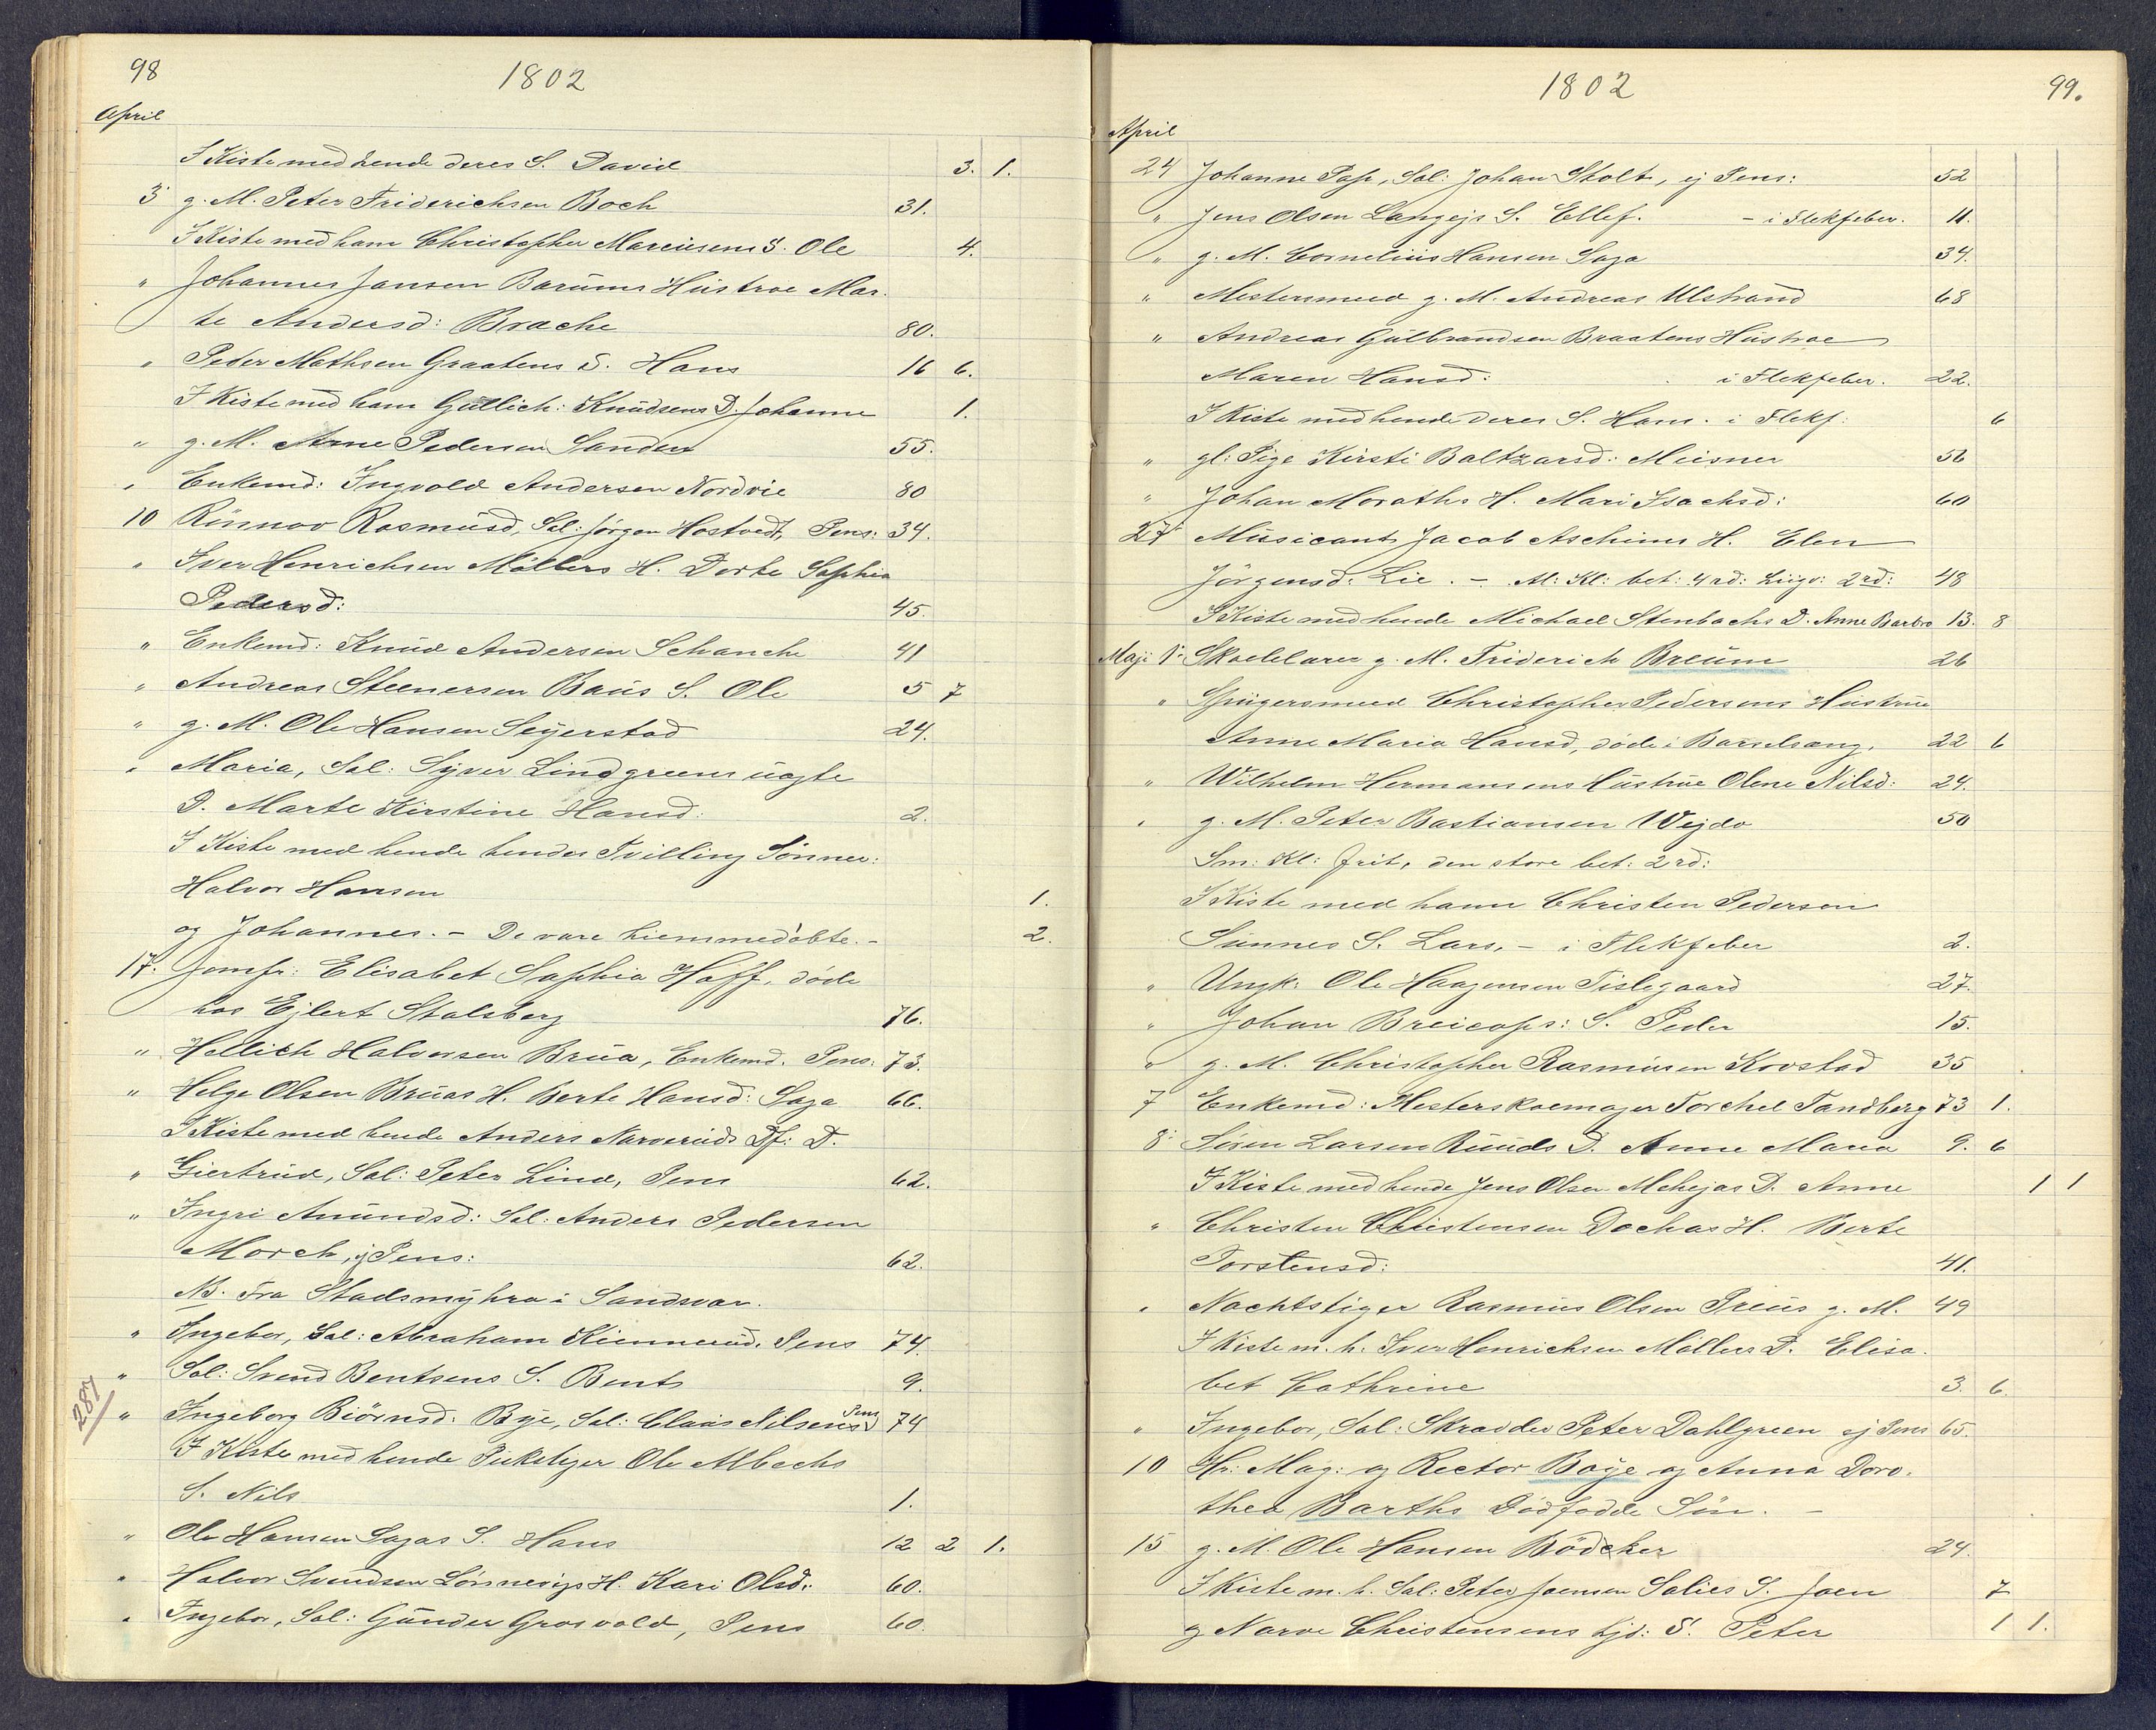 98
1802
April
I Kiste med hende deres S. David 3. 1.
3 g. M. Peter Friderichsen Boch 31.
I Kiste med ham Christopher Marcusens S. Ole 4.
" Johannes Jansen Barums Hustroe Mar-
te Andersd: Brache 80.
" Peder Mathsen Graatens S. Hans 16 6.
I Kiste med ham Gullich: Knudsens D. Johanne 1.
" g. M. Arne Pedersen Sanden 55.
" Enkemd: Ingvold Andersen Nordvie 80
10 Rönnov Rasmusd, Sal: Jörgen Hostvedt, Pens: 34.
" Iver Henrichsen Möllers H. Dorte Sophia
Pedersd: 45.
" Enkemd: Knud Andersen Schanche 41
" Andreas Steenersen Baus S. Ole 5 7
" g. M. Ole Hansen Seyerstad 24.
" Maria, Sal: Syver Lindgreens uægte
D. Marte Kirstine Hansd: 2.
I Kiste med hende hendes Tvilling Sönner:
Halvor Hansen 1.
og Johannes. - De vare hiemmedöbte. - 2.
17. Jomfr: Elisabet Sophia Hoff, döde
hos Ejlert Stalsberg 76.
" Hellich Halvorsen Brua, Enkemd. Pens: 73.
" Helge Olsen Bruas H. Berte Hansd: Saga 66.
I Kiste med hende Anders Narveruds Df: D.
" Giertrud, Sal: Peter Lind, Pens 62.
" Ingri Amundsd: Sal: Anders Pedersen
Morch, ej Pens: 62.
NB. Fra Stadsmyhra i Sandsvær.
" Ingebor, Sal: Abraham Kiennerud. Pens 74.
" Sal: Svend Bentsens S. Bent 9.
287
" Ingeborg Biörnsd: Bye, Sal: Claus Nilsens Pens 74
I Kiste med hende Pukstiger Ole Albechs
S. Nils 1.
" Ole Hansen Sagas S. Hans 12 2 1.
" Halvor Svendsen Lönnevigs H. Kari Olsd: 60.
" Ingebor, Sal: Gunder Grosvold, Pens 60.
1802
99.
April
24 Johanne Pap, Sal: Johan Stolt, ej Pens: 52
" Jens Olsen Langejs S. Ellef. - i Flekfeber. 11.
" g. M. Cornelius Hansen Saga 34.
" Mestersmed g. M. Andreas Ulstrand 68
" Andreas Gulbrandsen Braatens Hustroe
Maren Hansd: i Flekfeber. 22.
I Kiste med hende deres S. Hans. i Flekf: 6
" gl: Pige Kirsti Baltzarsd: Meisner 56
" Johan Moraths H. Mari Isachsd: 60
27 Musicant Jacob Aschims H. Elen
Jörgensd: Lie. - Al: Kl: bet: 4 rd: Liigv: 2 rd: 48
I Kiste med hende Michael Stenbachs D. Anne Barbro 13. 8
Maji 1. Skoelelærer g. M. Friderich Breum 26
" Spiigersmed Christopher Pedersens Hustrue
Anne Maria Hansd, döde i Barselsæng. 22 6
" Wilhelm Hermansens Hustrue Olene Nilsd: 24.
" g. M. Peter Bastiansen Wejdo 50
Sm: Kl: frit, den store bet: 2 rd:
I Kiste med ham Christen Pedersen
Sunnes S. Lars, - i Flekfeber 2.
" Ungk: Ole Haagensen Tislegaard 27.
" Johan Breicaps: S. Peder 15.
" g. M. Christopher Rasmusen Kovstad 35
7 Enkemd: Mesterskoemager Torchel Tandberg 73 1.
8. Sören Larsen Ruuds D. Anne Maria 9. 6
I Kiste med hende Jens Olsen Mehejas D. Anne 1 1
" Christen Christensen Dochas H. Berte
Torstensd: 41.
" Nachtstiger Rasmus Olsen Preus g. M. 49
I Kiste m. h. Iver Henrichsen Möllers D. Elisa-
bet Cathrine 3. 6.
" Ingebor, Sal: Skrædder Peter Dahlgreen ej Pens 65.
10 Hr: Mag: og Rector Boye og Anna Doro-
thea Barths Dödfødde Sön. -
15 g. M. Ole Hansen Bödcker 24.
I Kiste m. h. Sal: Peter Joensen Salies S. Joen 7
og Narve Christensens S. Peter 1 1.